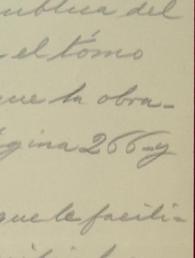 ública del
el tómo
que la obra-
ágina 266-y
que le facili-